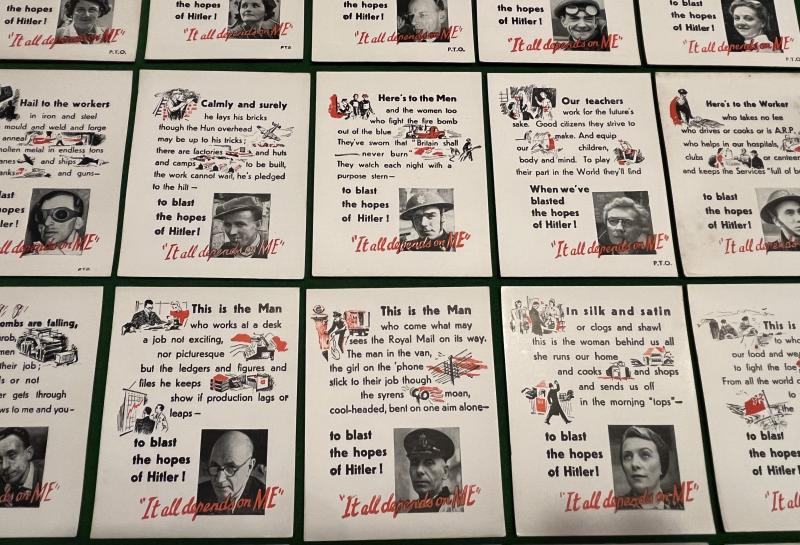 of Hitler!
"It all depends on ME"
P.T.O.
the hopes
of Hitler!
"It all depends on ME"
P.T.O.
of Hitler!
"It all depends on ME"
P.T.O.
the hopes
of Hitler!
"It all depends on ME"
to blast
the hopes
of Hitler!
"It all depends on ME"
P.T.O.
Hail to the workers
in iron and steel
mould and weld and forge
anneal
molten metal in endless tons
and ships
and guns—
last
hopes
Hitler!
all depends on ME"
P.T.O.
Calmly and surely
he lays his bricks
though the Hun overhead
may be up to his tricks;
there are factories and huts
and camps to be built,
the work cannot wait, he's pledged
to the hill —
to blast
the hopes
of Hitler!
"It all depends on ME"
Here's to the Men
and the women too
who fight the fire bomb
out of the blue
They've sworn that "Britain shall
never burn
They watch each night with a
purpose stern—
to blast
the hopes
of Hitler!
"It all depends on ME"
Our teachers
work for the future's
sake. Good citizens they strive to
make. And equip
our children,
body and mind. To play
their part in the World they'll find
When we've
blasted
the hopes
of Hitler!
"It all depends on ME"
P.T.O.
Here's to the Worker
who takes no fee
who drives or cooks or is A.R.P.
who helps in our hospitals,
clubs or canteen
and keeps the Services "full of
to blast
the hopes
of Hitler!
"It all depends
bombs are falling,
men
their job;
or not
gets through
to me and you—
last
hopes
Hitler!
depends on ME"
This is the Man
who works at a desk
a job not exciting,
nor picturesque
but the ledgers and figures and
files he keeps
show if production lags or
leaps—
to blast
the hopes
of Hitler!
"It all depends on ME"
This is the Man
who come what may
sees the Royal Mail on its way.
The man in the van,
the girl on the 'phone
stick to their job though
the syrens moan,
cool-headed, bent on one aim alone—
to blast
the hopes
of Hitler!
"It all depends on ME"
In silk and satin
or clogs and shawl
this is the woman behind us all
she runs our home
and cooks and shops
and sends us off
in the morning "tops"—
to blast
the hopes
of Hitler!
"It all depends on ME"
This is
to
our food and
to light the
From all the world
to
the
to blast
the hopes
of Hitler!
"It all